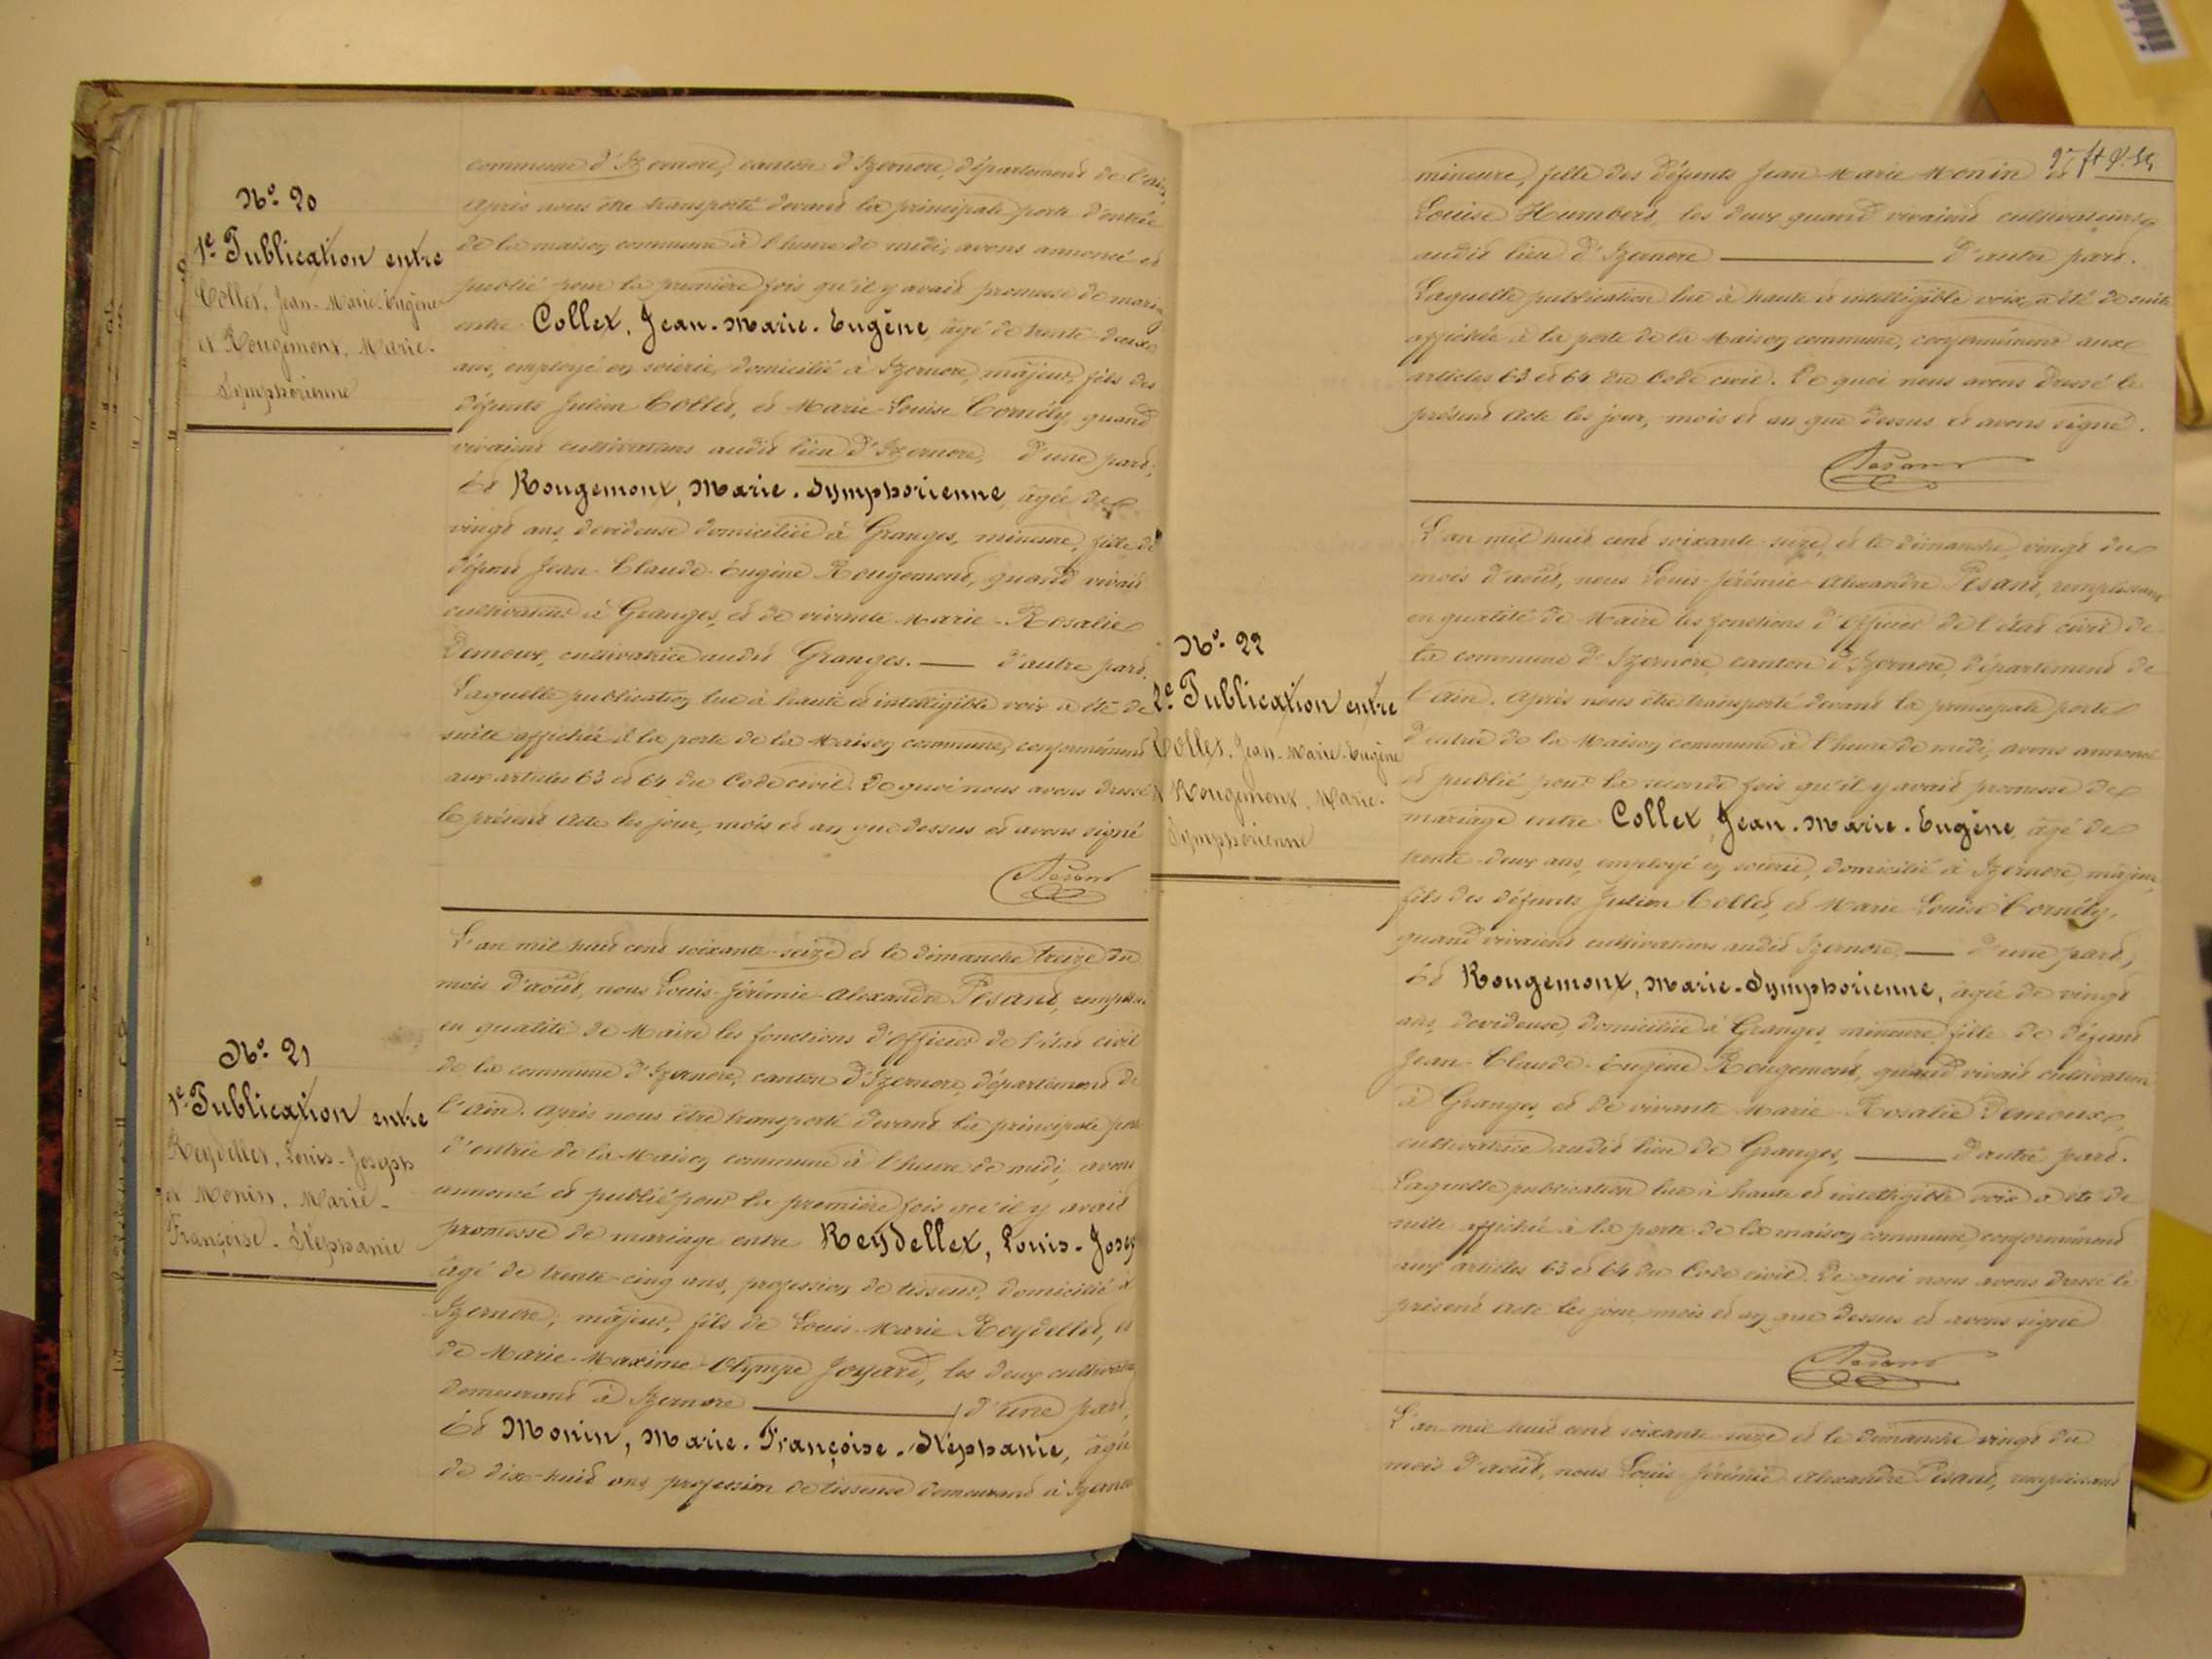 No. 20
1e. Publication entre
Collet, Jean-Marie-Eugène
et Rougemont, Marie-
Symphorienne
commune d'Izernore, canton d'Izernore, département de l'Ain,
Après nous être transporté devant la principale porte d'entrée
de la maison commune à l'heure de midi, avons annoncé et
publié pour la première fois qu'il y avait promesse de mariage
entre Collet, Jean-Marie-Eugène, âgé de trente-deux
ans, employé en soierie, domicilié à Izernore, majeur, fils des
défunts Julien Collet, et Marie-Louise Cornély, quand
vivaient cultivateurs audit lieu d'Izernore, d'une part;
Et Rougemont, Marie-Symphorienne, âgée de
vingt ans, devideuse domiciliée à Granges, mineure, fille de
défunt Jean-Claude-Eugène Rougemont, quand vivait
cultivateur à Granges, et de vivante Marie-Rosalie
Demoux, cultivatrice audit Granges. — d'autre part.
Laquelle publication lue à haute et intelligible voix a été de
suite affichée à la porte de la Maison commune, conformément
aux articles 63 et 64 du Code civil. De quoi nous avons dressé
le présent Acte les jour, mois et an que dessus et avons signé
Pesant
No. 21
1e. Publication entre
Reydellet, Louis-Joseph
et Monin, Marie-
Françoise-Stéphanie
L'an mil huit cent soixante-seize et le dimanche treize du
mois d'août, nous Louis-Jérémie-Alexandre Pesant,
en qualité de Maire les fonctions d'officier de l'état civil
de la commune d'Izernore, canton d'Izernore, département de
l'Ain. Après nous être transporté devant la principale porte
d'entrée de la Maison commune à l'heure de midi, avons
annoncé et publié pour la première fois qu'il y avait
promesse de mariage entre Reydellet, Louis-Josep
âgé de trente-cinq ans, profession de tisseur, domicilié à
Izernore, majeur, fils de Louis-Marie Reydellet, et
de Marie-Maxime-Olympe Joyard, les deux cultivateurs
demeurant à Izernore — d'une part,
Et Monin, Marie-Françoise-Stéphanie, âgée
de dix-huit ans profession de tisseuse demeurant à Izernore
mineure, fille des défunts Jean Marie Monin et
Louise Humbert, les deux quand vivaient cultivateurs
audit lieu d'Izernore — d'autre part.
Laquelle publication lue à haute et intelligible voix, a été de suite
affichée à la porte de la Maison commune, conformément aux
articles 63 et 64 du Code civil. De quoi nous avons dressé le
présent Acte les jour, mois et an que dessus et avons signé.
Pesant
No. 22
2e. Publication entre
Collet, Jean-Marie-Eugène
et Rougemont, Marie-
Symphorienne
L'an mil huit cent soixante-seize, et le dimanche, vingt du
mois d'août, nous Louis-Jérémie-Alexandre Pesant, remplissant
en qualité de Maire les fonctions d'officier de l'état civil de
la commune d'Izernore, canton d'Izernore, département de
l'Ain. Après nous être transporté devant la principale porte
d'entrée de la Maison commune à l'heure de midi, avons annoncé
et publié pour la seconde fois qu'il y avait promesse de
mariage entre Collet, Jean-Marie-Eugène, âgé de
trente-deux ans, employé en soierie, domicilié à Izernore, majeur,
fils des défunts Julien Collet, et Marie Louise Cornély,
quand vivaient cultivateurs audit Izernore, — d'une part;
Et Rougemont, Marie-Symphorienne, âgée de vingt
ans, devideuse, domiciliée à Granges, mineure, fille de défunt
Jean-Claude-Eugène Rougemont, quand vivait cultivateur
à Granges, et de vivante Marie-Rosalie Demoux,
cultivatrice audit lieu de Granges, — d'autre part.
Laquelle publication lue à haute et intelligible voix a été de
suite affichée à la porte de la maison commune, conformément
aux articles 63 et 64 du Code civil. De quoi nous avons dressé le
présent Acte les jour, mois et an que dessus et avons signé
Pesant
L'an mil huit cent soixante-seize et le dimanche vingt du
mois d'août, nous Louis-Jérémie-Alexandre Pesant, remplissant